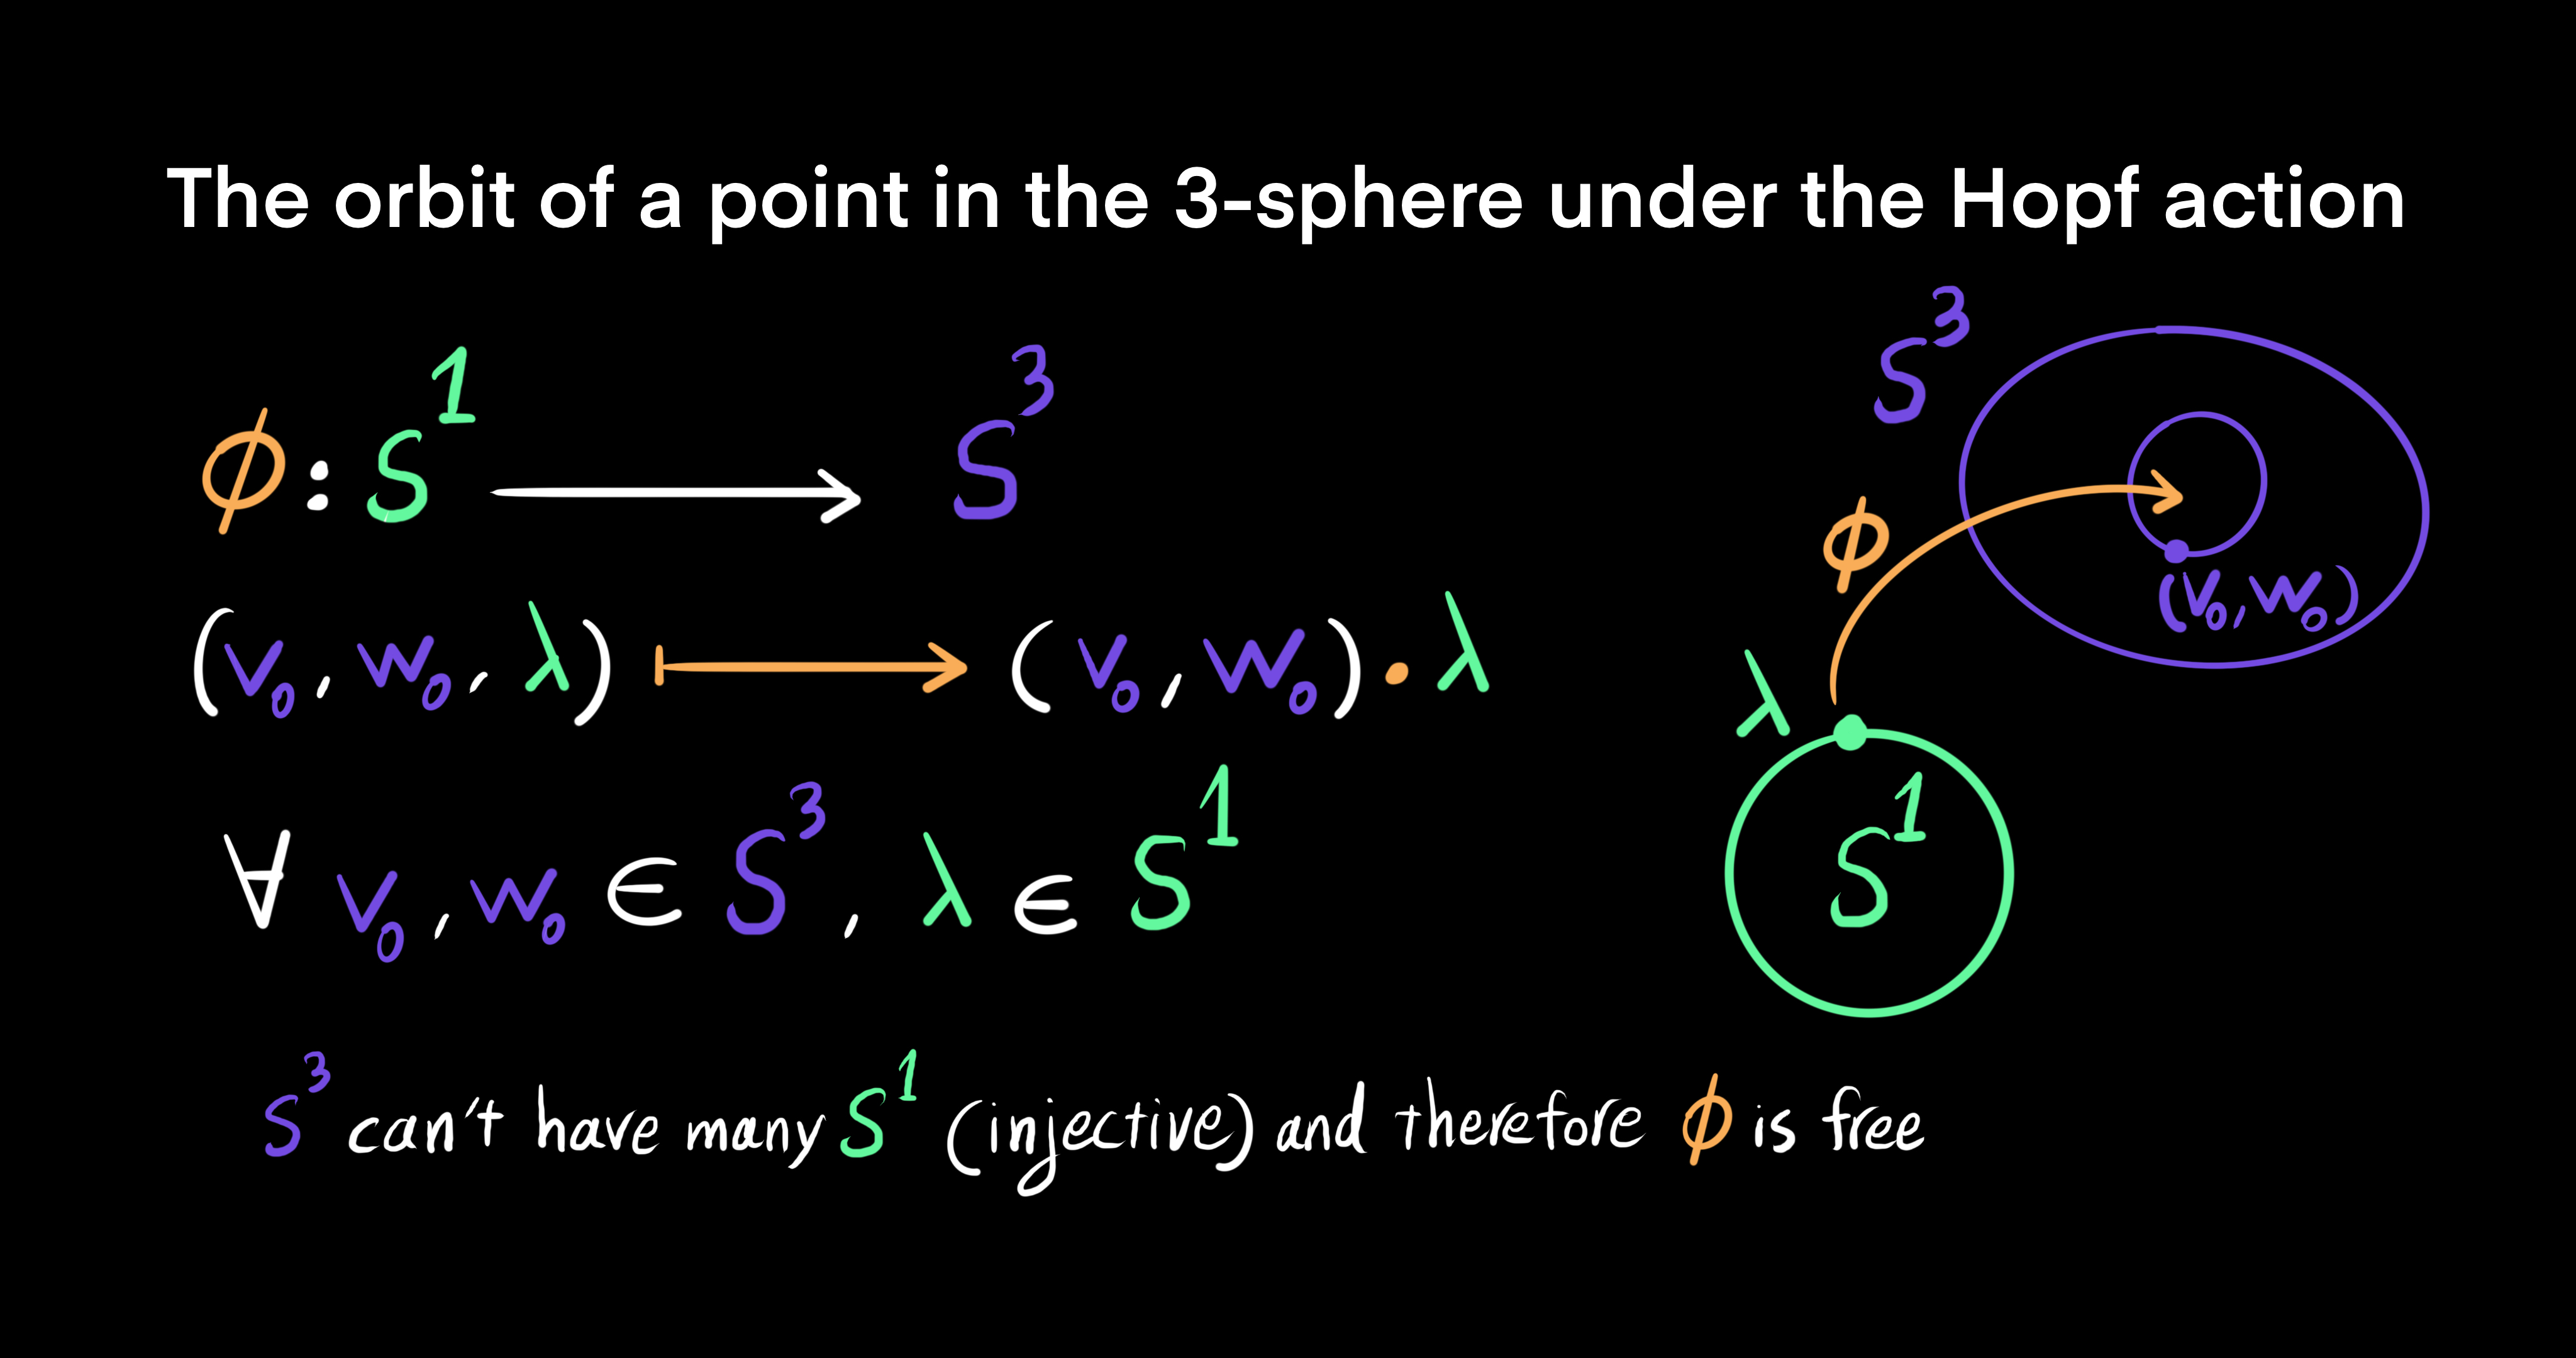 The orbit of a point in the 3-sphere under the Hopf action
ϕ: S¹ ⟶ S³
(v₀, w₀, λ) ⟼ (v₀, w₀) · λ
∀ v₀, w₀ ∈ S³, λ ∈ S¹
S³ can't have many S¹ (injective) and therefore ϕ is free
S³
ϕ
(v₀, w₀)
λ
S¹